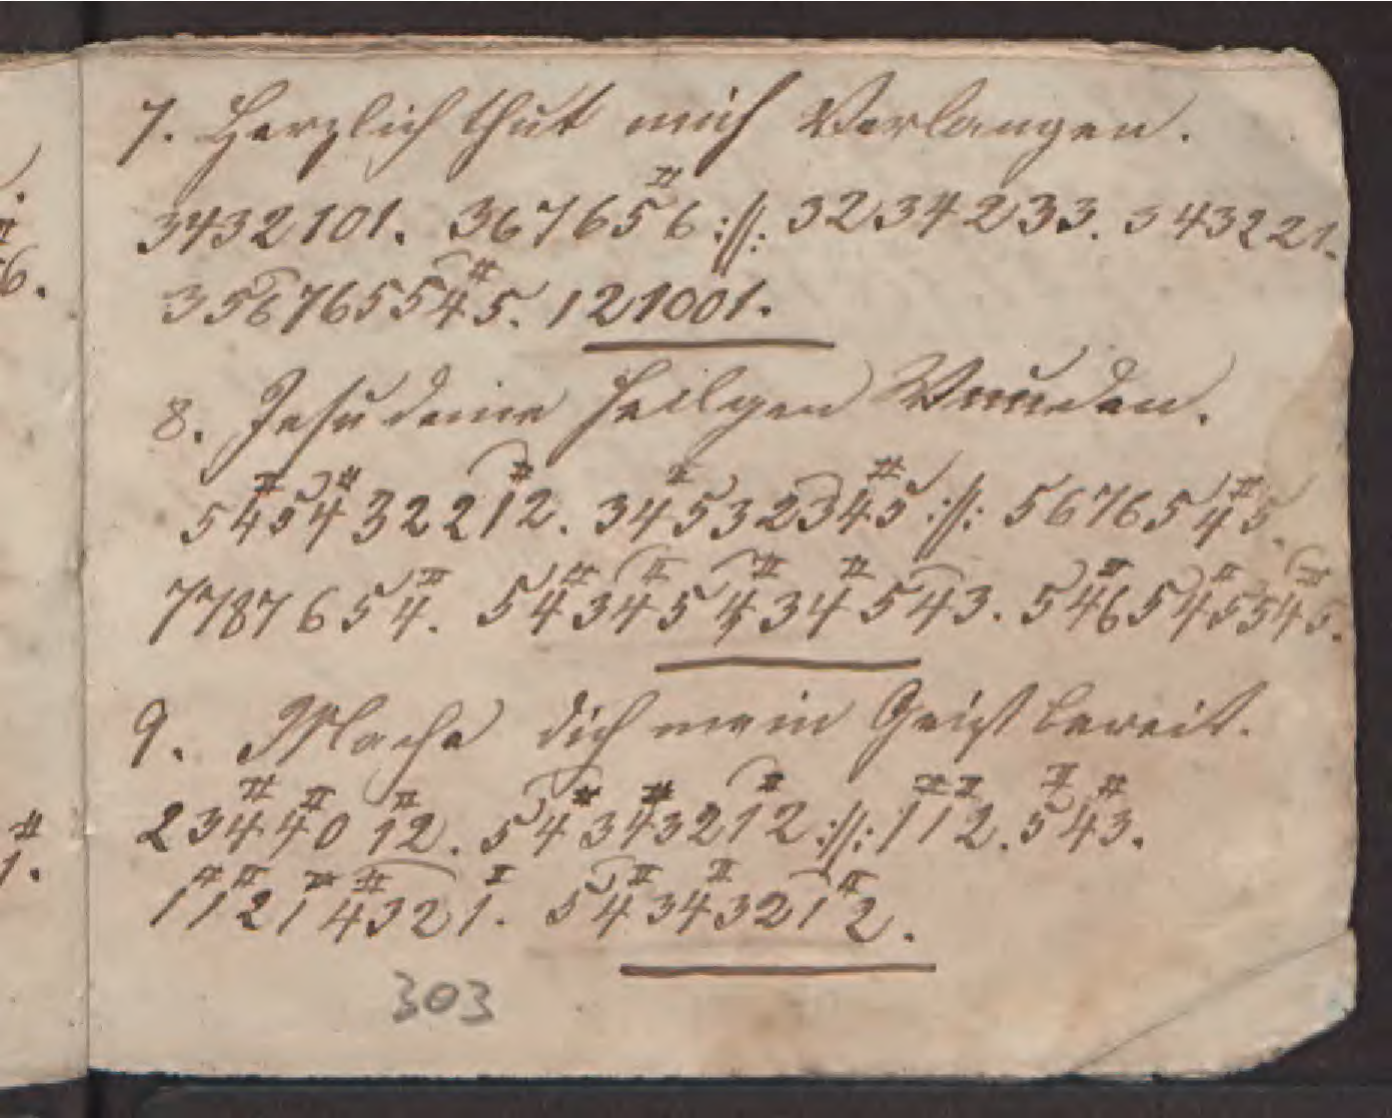 7. Herzlich thut mich Verlangen.
3432101. 3676556 :||: 3234233. 343221.
3567655545. 121001.
8. Jesu deine heilgen Wunden.
5454322212. 3453232345 :||: 56765545.
77876554. 543454345543. 546545545.
9. Mache dich mein Geist bereit.
2344012. 5434321 2 :||: 112. 543.
11214321. 54343212.
303
6.
1.